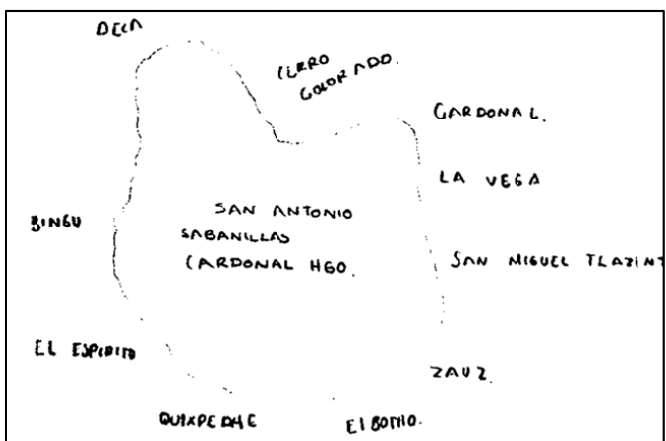 DECA
CERRO
COLORADO.
CARDONAL.
LA VEGA
SAN ANTONIO
SABANILLAS
CARDONAL HGO.
BINGU
SAN MIGUEL TLAZINT
EL ESPIRITU
ZAUZ.
QUIXPEDHE
El BOTHO.